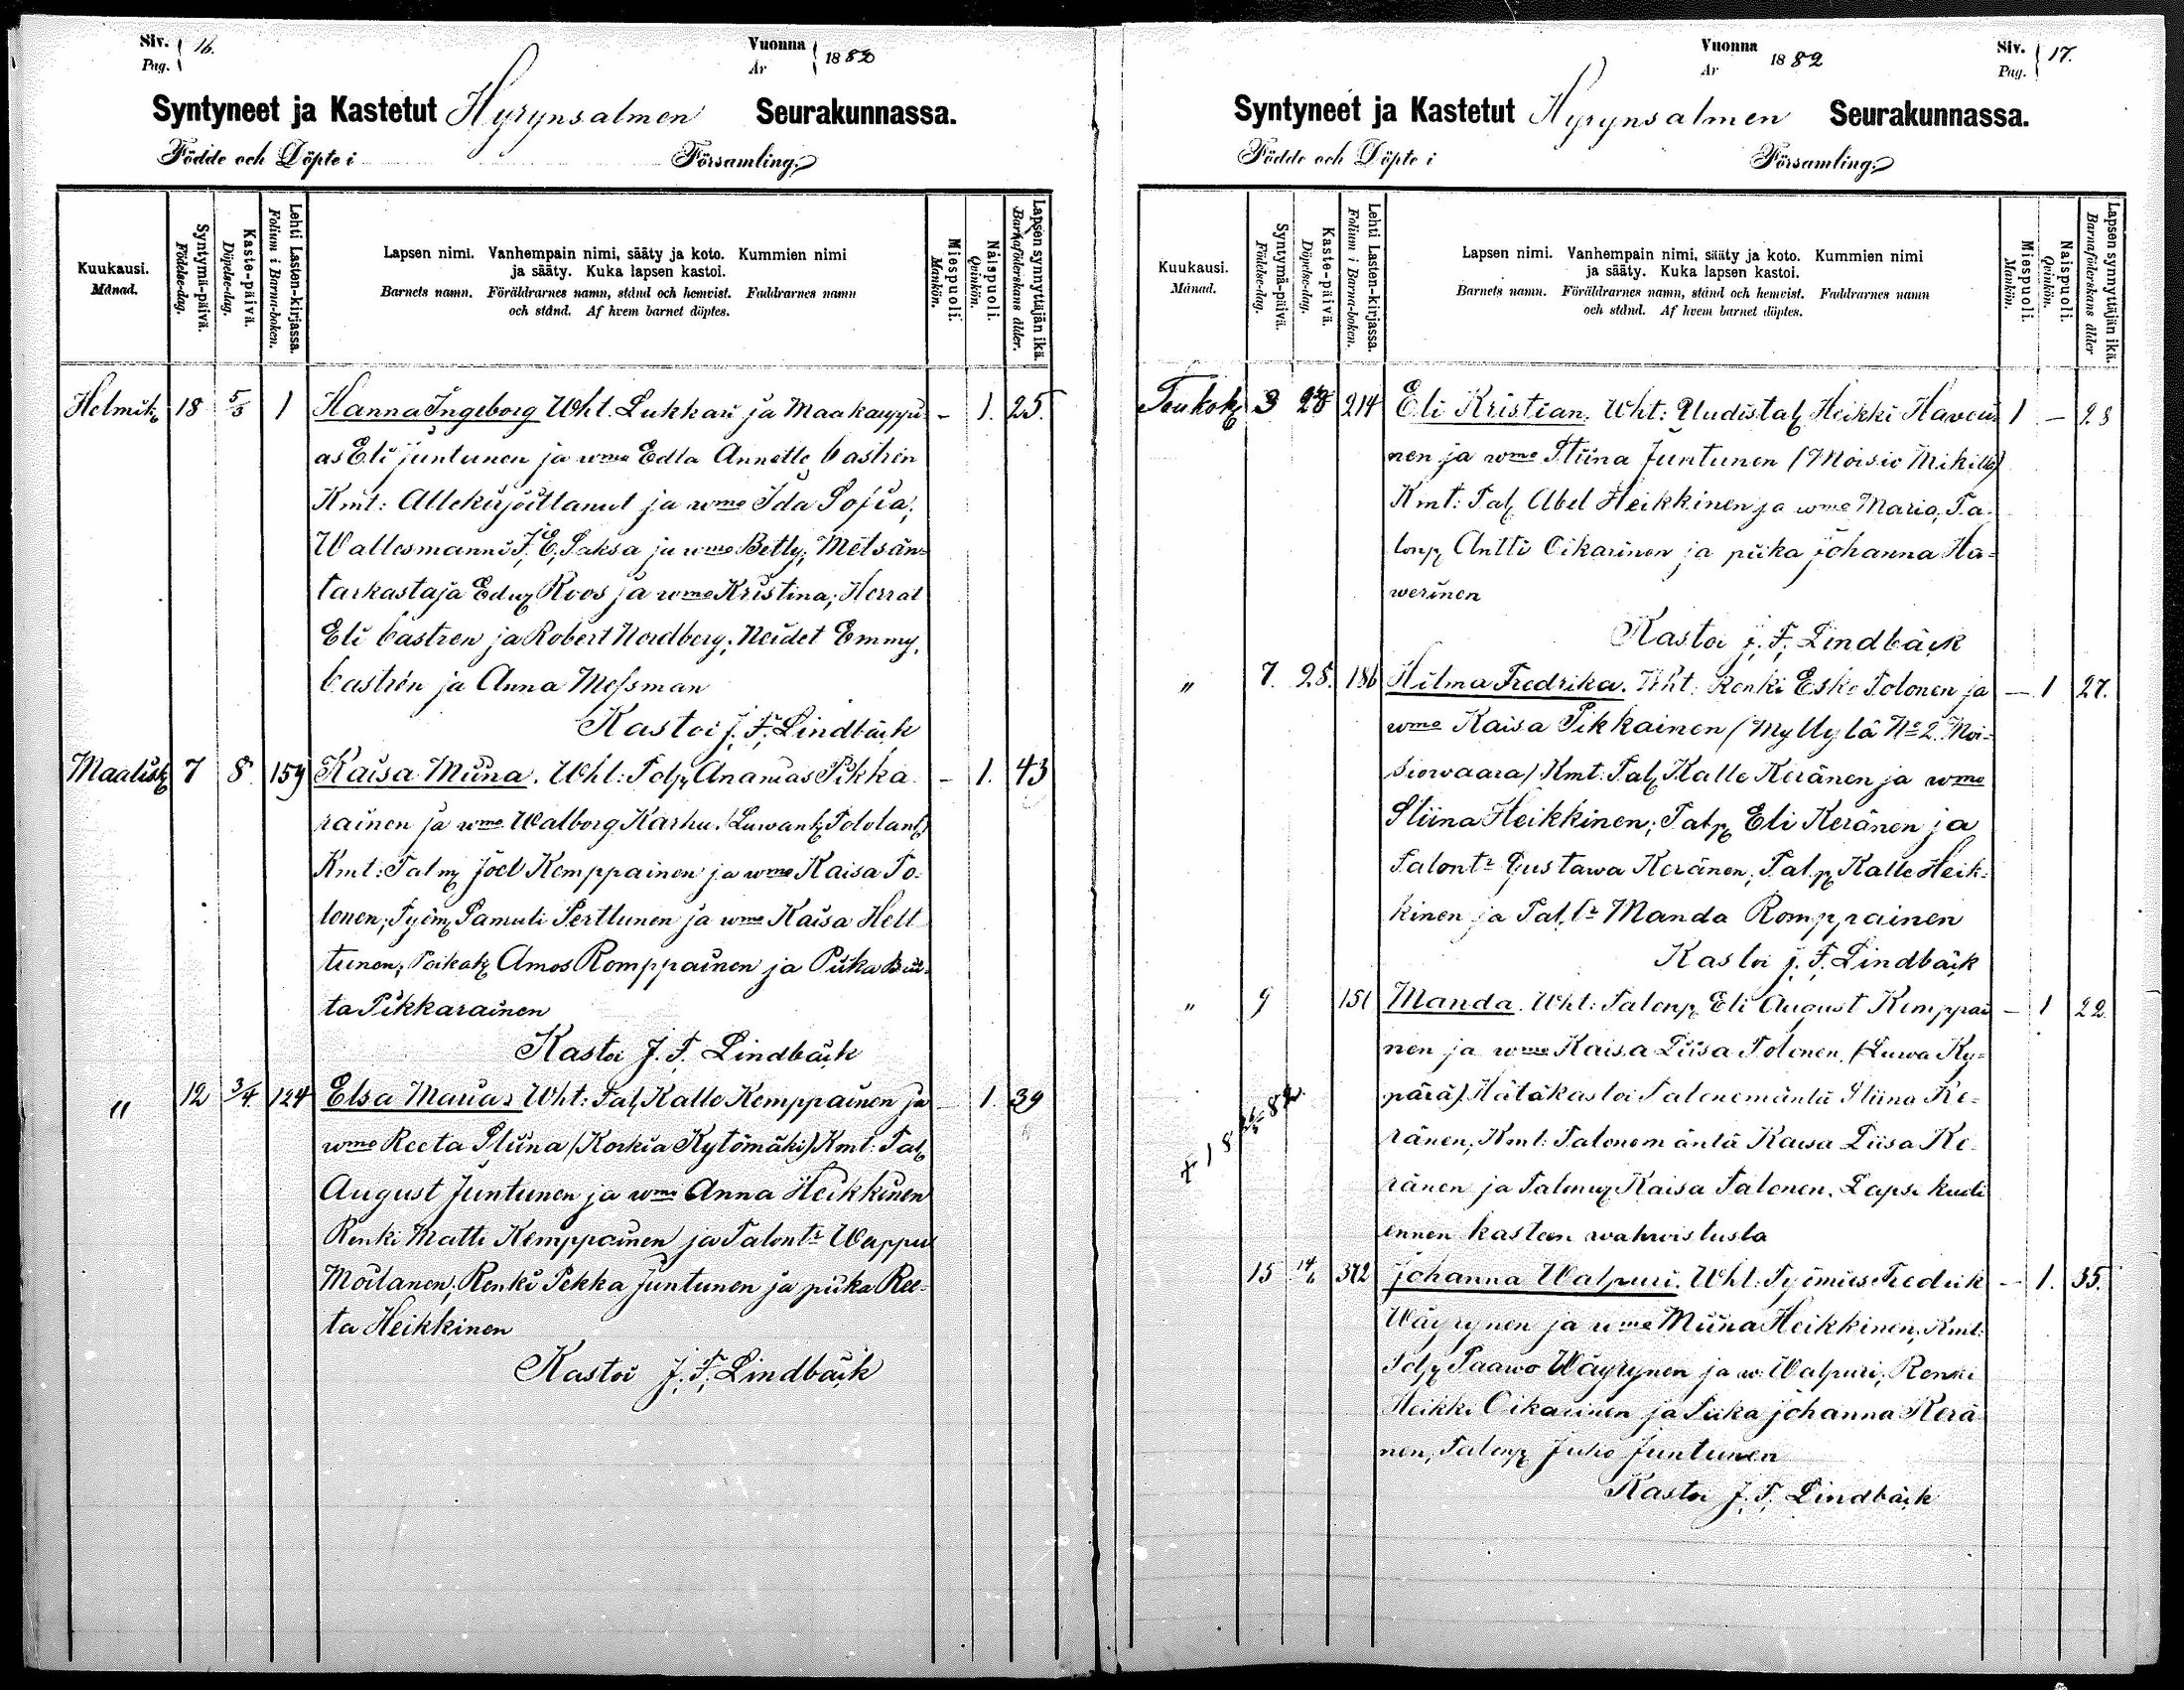 Siv. 16.
Pag.
Vuonna 1882
År
Syntyneet ja Kastetut Hyrynsalmen Seurakunnassa.
Födde och Döpte i Församling.
Kuukausi.
Månad.
Syntymä-päivä.
Födelse-dag.
Kaste-päivä.
Döpelse-dag.
Lehti Lasten-kirjassa.
Folium i Barna-boken.
Lapsen nimi. Vanhempain nimi, sääty ja koto. Kummien nimi
ja sääty. Kuka lapsen kastoi.
Barnets namn. Föräldrarnes namn, stånd och hemvist. Faddrarnes namn
och stånd. Af hvem barnet döptes.
Miespuoli.
Mankön.
Naispuoli.
Qvinkön.
Lapsen synnyttäjän ikä.
Barnaföderskans ålder.
Helmik 18 5/3 1 Hanna Ingeborg Wht. Lukkari ja Maakauppi- – 1. 25.
as Eli Juntunen ja wmo Edla Annette Castrén
Kmt: Allekirjoittanut ja wmo Ida Sofia;
Wallesmanni J. E. Saksa ja wmo Betty; Metsän-
tarkastaja Edw Roos ja wmo Kristina; Herrat
Eli Castren ja Robert Nordberg; Neidet Emmy
Castrén ja Anna Messman
Kastoi J. F. Lindbäck
Maalisk 7 8. 159 Kaisa Miina. Wht: Talp Ananias Pikka- – 1. 43
rainen ja wmo Walborg Karhu. (Luwank Tololank)
Kmt: Talm Joel Kemppainen ja wmo Kaisa To-
lonen; Työm Samuli Perttunen ja wmo Kaisa Helt-
tunen; Poikak Amos Romppainen ja Piika Brii-
ta Pikkarainen
Kastoi J. F. Lindbäck
" 12 3/4. 124 Elsa Maria. Wht: Tal Kalle Kemppainen ja – 1. 39
wmo Reeta Stiina (Korkia Kytömäki) Kmt: Tal
August Juntunen ja wmo Anna Heikkinen
Renki Matti Kemppainen ja Talontr Wappu
Moilanen; Renki Pekka Juntunen ja piika Ree-
ta Heikkinen
Kastoi J. F. Lindbäck
Vuonna 1882
År
Siv. 17.
Pag.
Syntyneet ja Kastetut Hyrynsalmen Seurakunnassa.
Födde och Döpte i Församling.
Kuukausi.
Månad.
Syntymä-päivä.
Födelse-dag.
Kaste-päivä.
Döpelse-dag.
Lehti Lasten-kirjassa.
Folium i Barna-boken.
Lapsen nimi. Vanhempain nimi, sääty ja koto. Kummien nimi
ja sääty. Kuka lapsen kastoi.
Barnets namn. Föräldrarnes namn, stånd och hemvist. Faddrarnes namn
och stånd. Af hvem barnet döptes.
Miespuoli.
Mankön.
Naispuoli.
Qvinkön.
Lapsen synnyttäjän ikä.
Barnaföderskans ålder
Toukok 3 28 214 Eli Kristian. Wht: Uudistal Heikki Haveri- 1 – 28
nen ja wmo Stiina Juntunen (Moisio Mikilä)
Kmt: Tal Abel Heikkinen ja wmo Maria, Ta-
lonp Antti Oikarinen ja piika Johanna Ha-
werinen
Kastoi J. F. Lindbäck
" 7. 28. 186 Hilma Fredrika. Wht: Renki Esko Tolonen ja – 1 27.
wmo Kaisa Pikkainen (Myllylä No 2. Moi-
siowaara) Kmt: Tal Kalle Keränen ja wmo
Stiina Heikkinen; Talp Eli Keränen ja
Talontr Gustawa Keränen; Talp Kalle Heik-
kinen ja Tal.tr Manda Romppainen
Kastoi J. F. Lindbäck
" 9 151 Manda. Wht: Talonp Eli August Kemppai- – 1 22.
nen ja wmo Kaisa Liisa Tolonen. (Luwa Ky-
pärä) Hätäkastoi Talonemäntä Stiina Ke-
ränen; Kmt: Talonemäntä Kaisa Liisa Ke-
ränen ja Talonp Kaisa Talonen. Lapsi kuoli
ennen kasteen wahwistusta
15 14/6 372 Johanna Walpuri. Wht: Työmies Fredrik – 1. 35.
Wäyrynen ja wmo Miina Heikkinen, Kmt:
Talp Paawo Wäyrynen ja w. Walpuri; Renki
Heikki Oikarinen ja Piika Johanna Kerä-
nen, Talonp Juho Juntunen
Kastoi J. F. Lindbäck